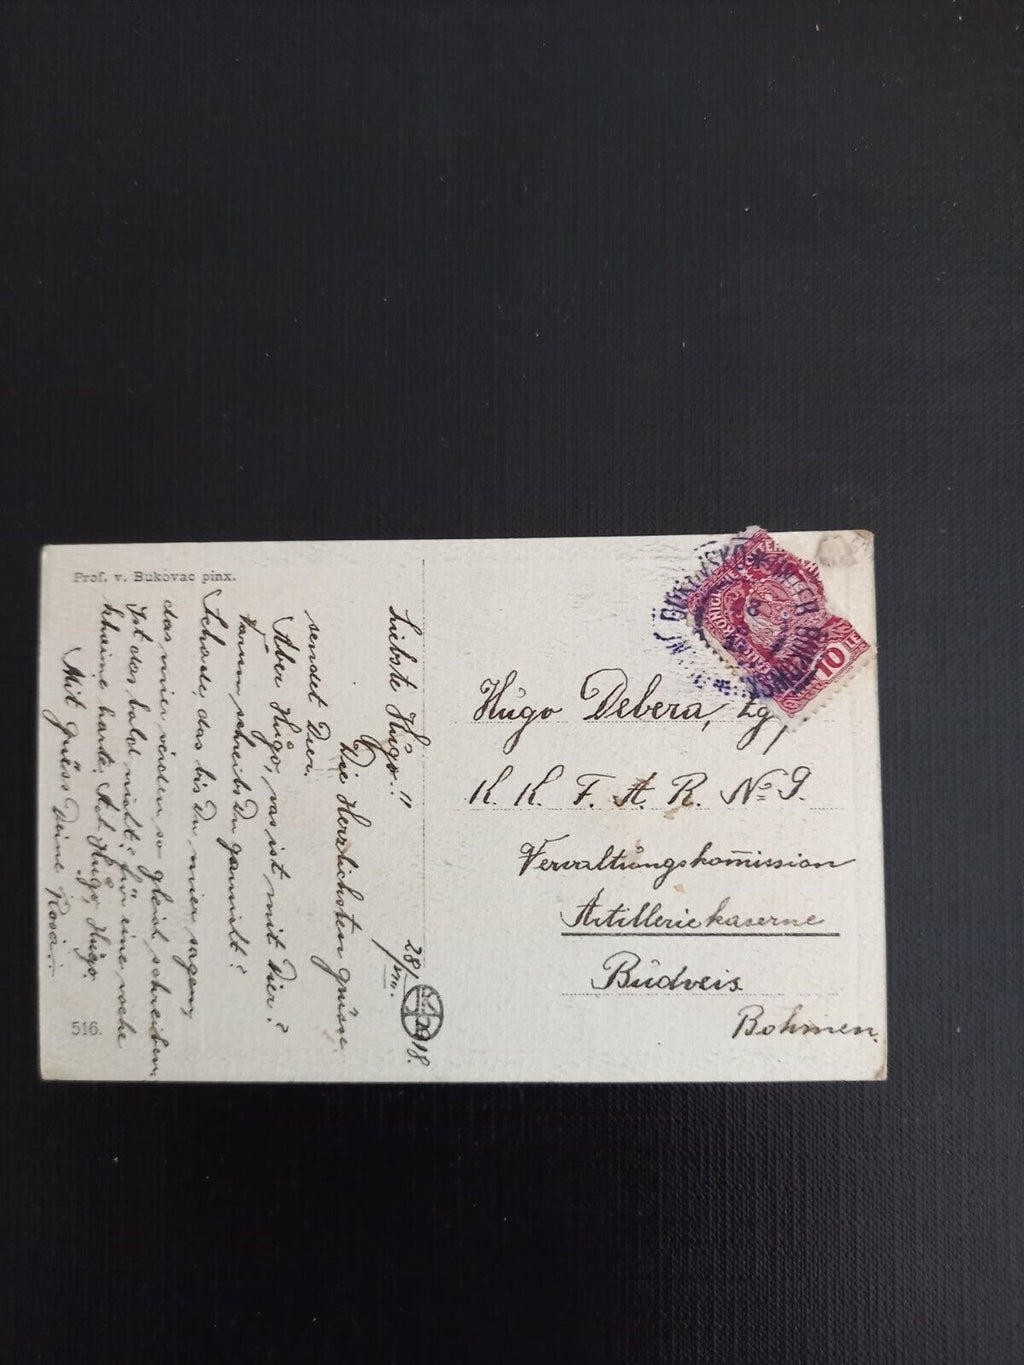 Prof. v. Bukovac pinx.
28/VIII. 18.
Liebste Hugo!!
Die Herzlichsten grüsse
sendet Dier.
Aber Hugo, vas ist mit Dier?
Varum schreibs Du garnicht?
Schade, das bis Du mier sagen,
das mier verden so gleich schreiben.
Ist das bald nicht; für eine voche
kheine karte. Ach Hugo, Hugo.
Mit grüss Deine Rosa.
516.
10
Hugo Debera, Zg,
K. K. F. A. R. No 9.
Vervaltungskomission
Artilleriekaserne
Budveis
Bohmen.